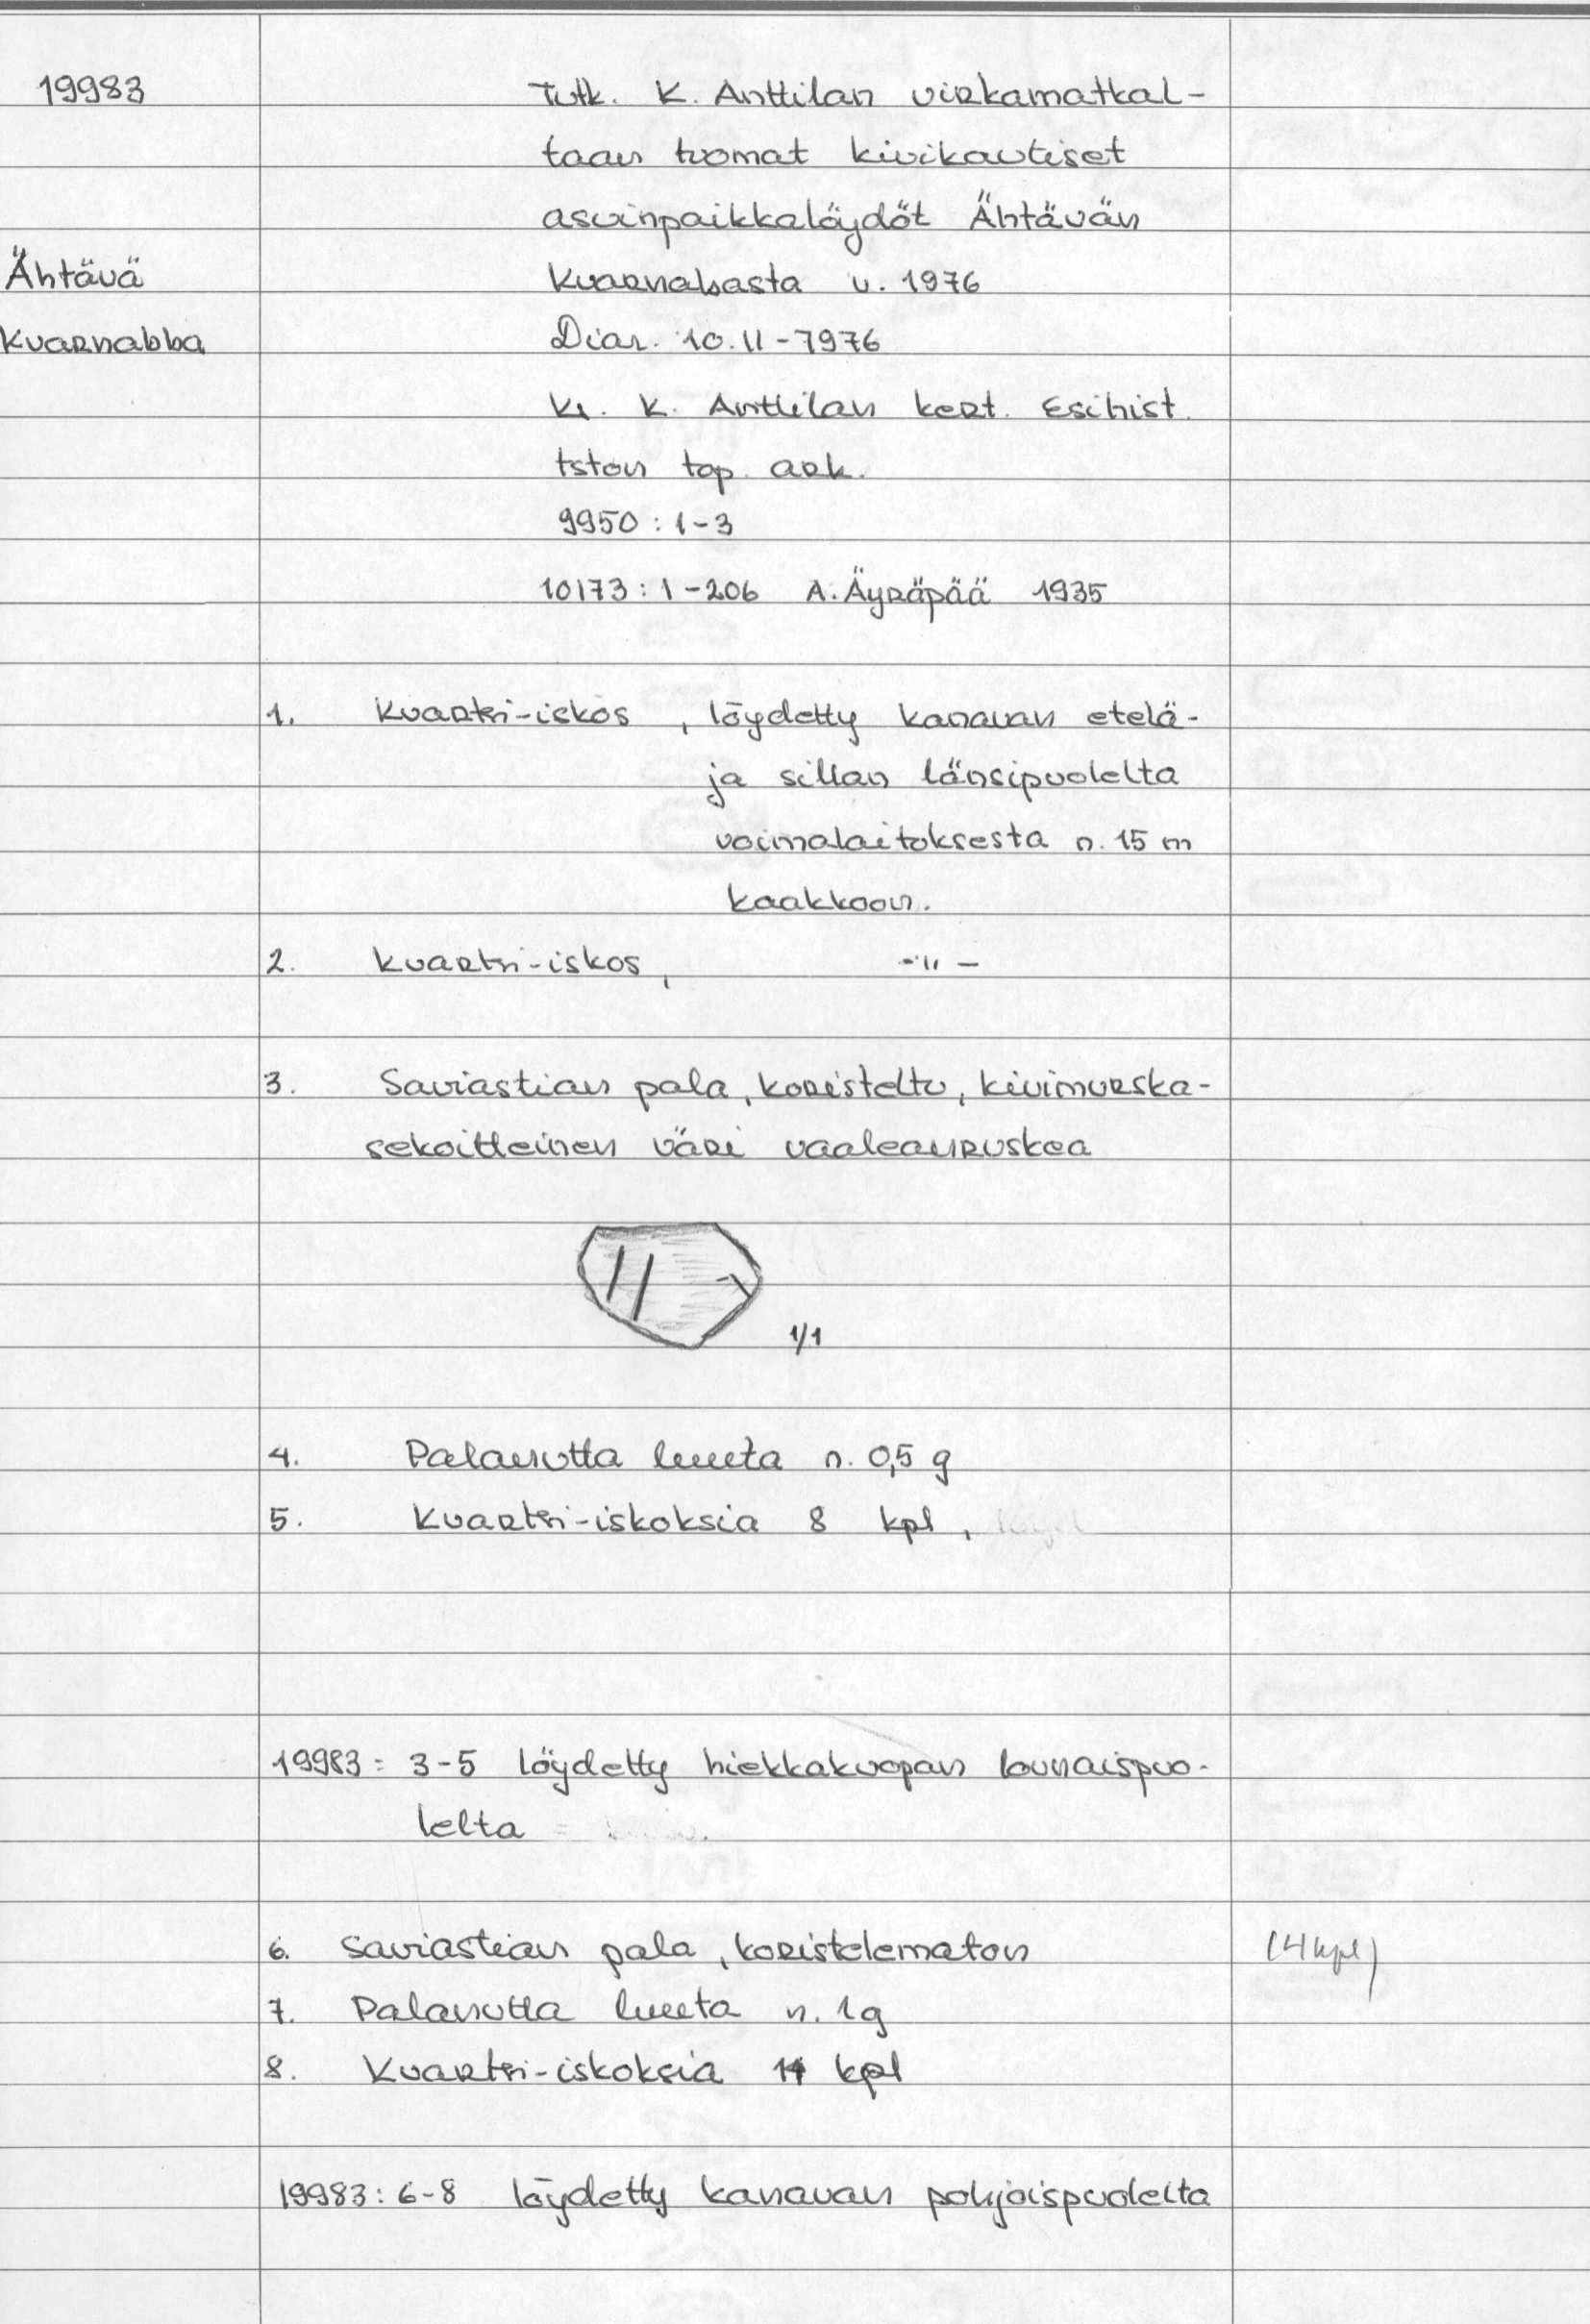 19983 Tutk. K. Anttilan virkamatkal-
taan tuomat kivikautiset
asuinpaikkalöydöt Ähtävän
Ähtävä Kvarnabasta v. 1976
Kvarnabba Diar. 10.11-1976
Ks. K. Anttilan kert. Esihist.
tston top. ark.
9950 : 1-3
10173 : 1-206 A. Äyräpää 1935
1. Kvartsi-iskos, löydetty kanavan etelä-
ja sillan länsipuolelta
voimalaitoksesta n. 15 m
kaakkoon.
2. Kvartsi-iskos, -"-
3. Saviastian pala, koristeltu, kivimurska-
sekoitteinen väri vaaleanruskea
1/1
4. Palanutta luuta n. 0,5 g
5. Kvartsi-iskoksia 8 kpl,
19983 : 3-5 löydetty hiekkakuopan lounaispuo-
lelta
6. Saviastian pala, koristelematon (4 kpl)
7. Palanutta luuta n. 1g
8. Kvartsi-iskoksia kpl
19983 : 6-8 löydetty kanavan pohjoispuolelta